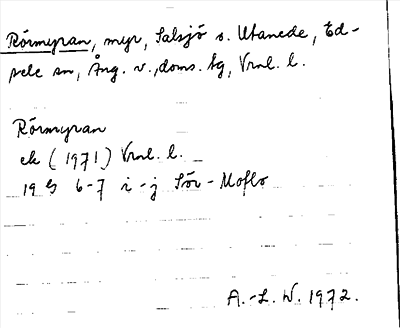 Rörmyran, myr, Salsjö s. Utanede, Ed-
sele sn, Ång. v., doms. tg, Vrnl. l.
Rörmyran
ek (1971) Vrnl. l.
19 G 6-7 i-j Sör-Moflo
A.-L. W. 1972.